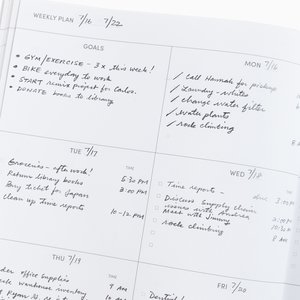 WEEKLY PLAN 7/16 7/22
GOALS
GYM/EXERCISE - 3x this week!
BIKE everyday to work
START remix project for Carlos.
DONATE books to library
MON 7/16
Call Hannah for pickup
Laundry - whites
change water filter
water plants
rock climbing
TUE 7/17
TIME
Groceries - after work!
Return library books 5:30 PM
Buy ticket for Japan 3:00 PM
Clean up Time reports 10-12 PM
WED 7/18
TIME
Time reports - due 3:00 PM
Discuss Supply chain
issues with Andrea
Meet with Jimmy
rock climbing 8 AM
THU 7/19
TIME
office supplies 9 AM
warehouse inventory
FRI 7/20
Dentist!